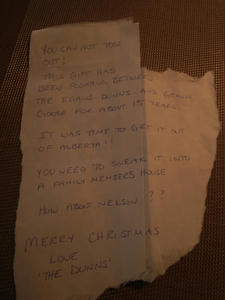 YOU CAN NOT TOSS
OUT!
THIS GIFT HAS
BEEN FLOATING BETWEEN
THE EGANS-DUNNS-AND
GOOSE FOR ABOUT 15 YEARS.
IT WAS TIME TO GET IT OUT
OF ALBERTA!!
YOU NEED TO SNEAK IT INTO
A FAMILY MEMBERS HOUSE
HOW ABOUT NELSON??
MERRY CHRISTMAS
LOVE
'THE DUNNS'